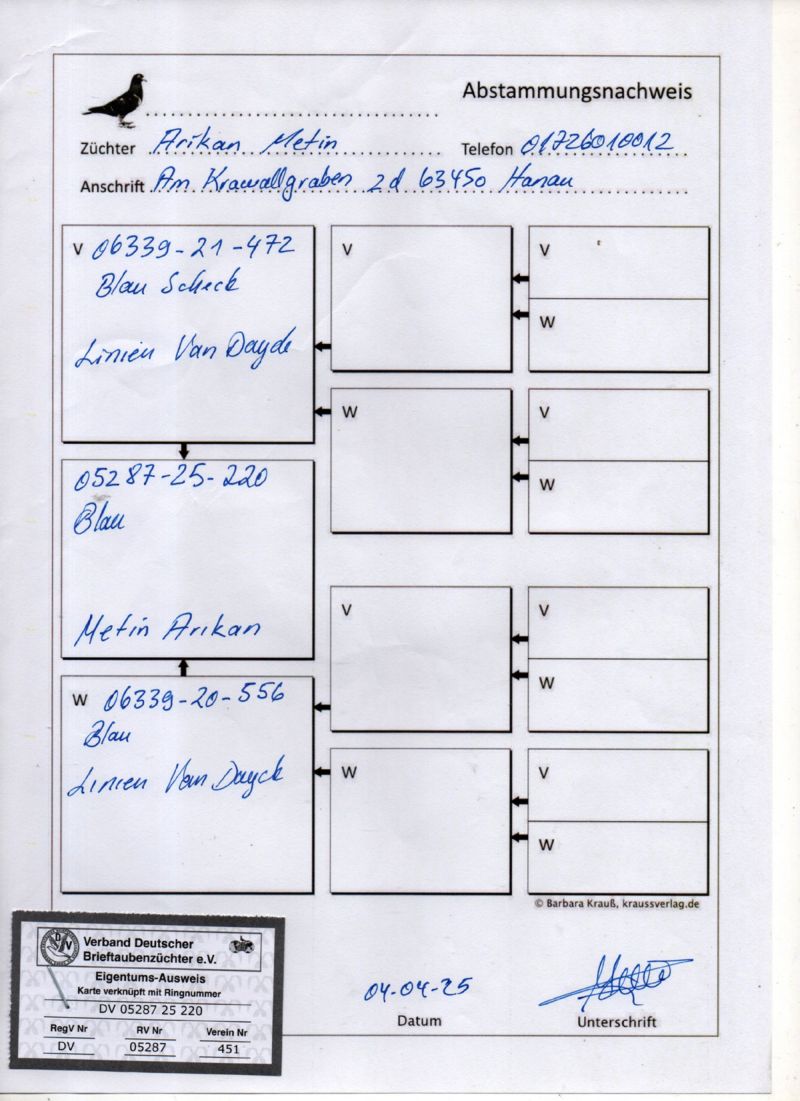 Abstammungsnachweis
Züchter Arikan Metin
Telefon 01726010012
Anschrift Am Krawallgraben 2d 63450 Hanau
V 06339-21-472
Blau Scheck
Linien Van Dayck
05287-25-220
Blau
Metin Arikan
W 06339-20-556
Blau
Linien Van Dayck
V
V
W
W
V
W
V
V
W
W
V
W
© Barbara Krauß, kraussverlag.de
DV
Verband Deutscher
Brieftaubenzüchter e.V.
Eigentums-Ausweis
Karte verknüpft mit Ringnummer
DV 05287 25 220
RegV Nr RV Nr Verein Nr
DV 05287 451
04-04-25
Datum
Unterschrift